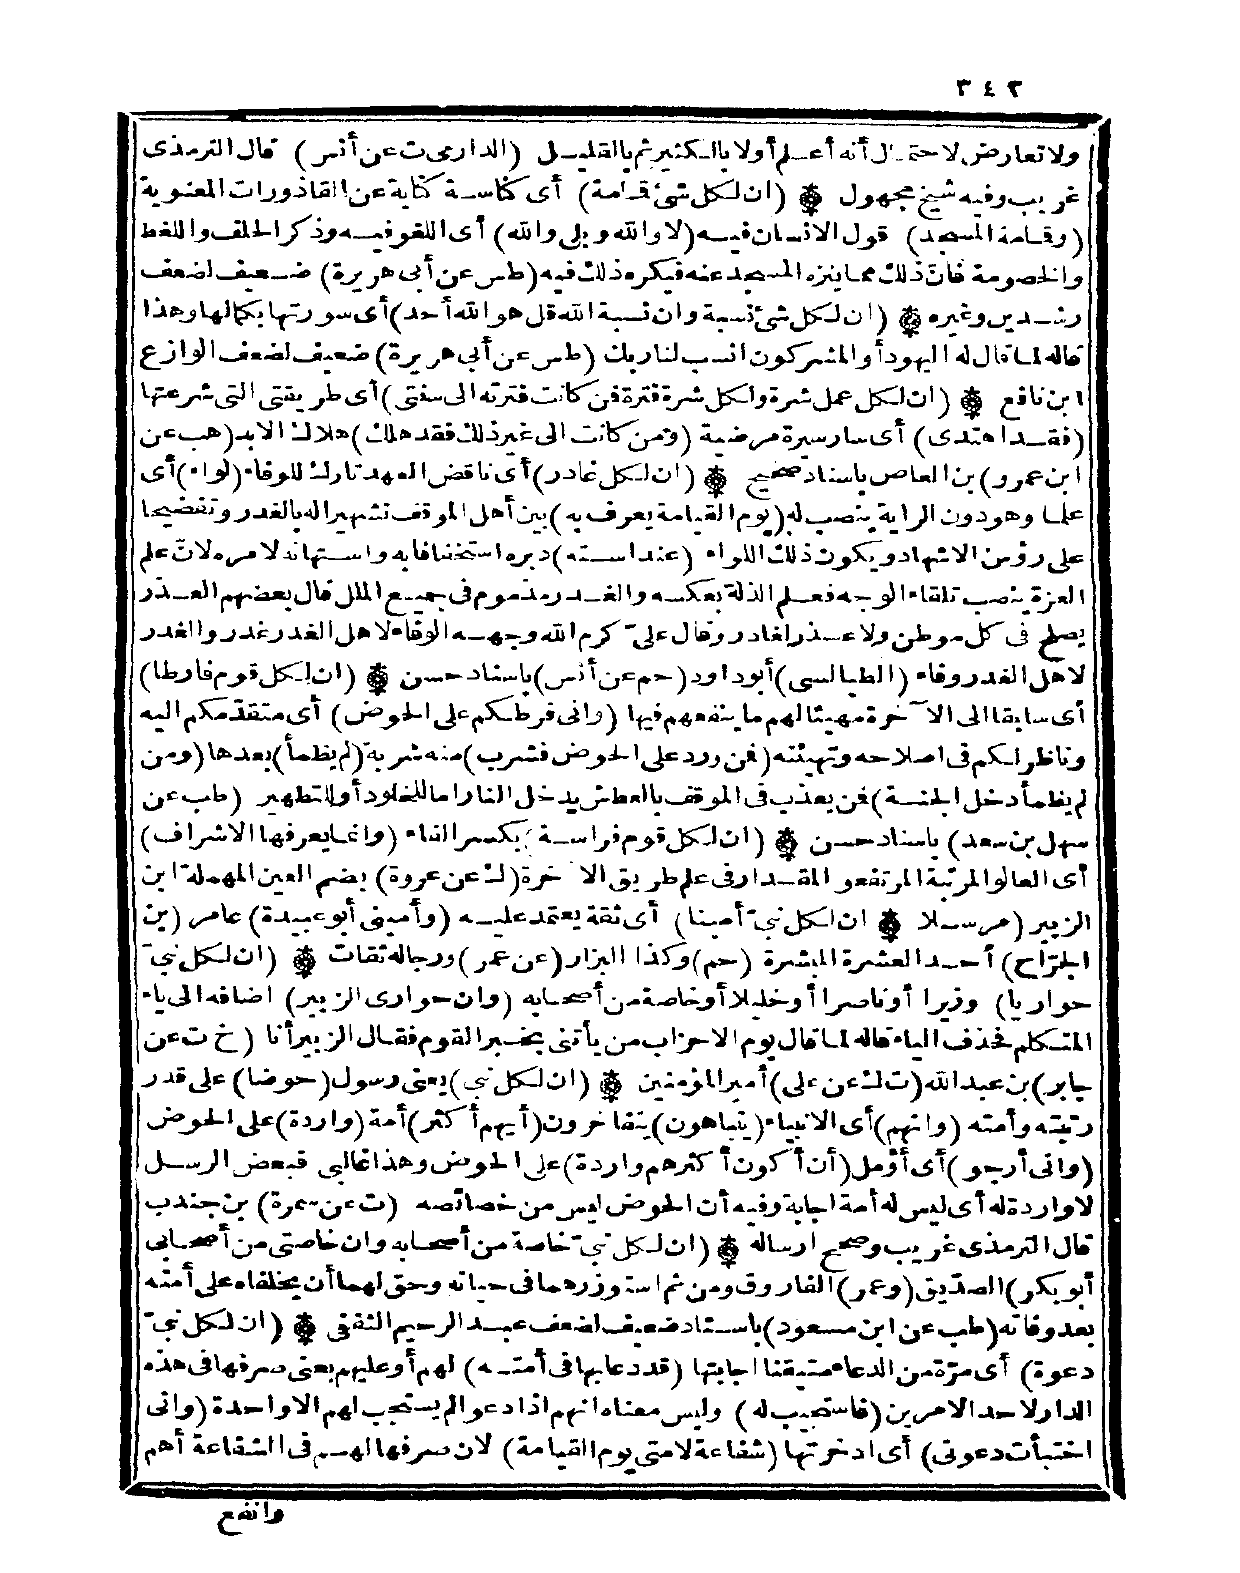 ٣٤٢
ولا تعارض لاحتمال أنه أعلم أولا بالكثير ثم بالقليل (الدارمى ت عن أنس) قال الترمذى
غريب وفيه شيخ مجهول ۞ (ان لكل شئ قمامة) أى كناسة كناية عن القاذورات المعنوية
(وقمامة المسجد) قول الانسان فيه (لا والله وبلى والله) أى اللغو فيه وذكر الحلف واللغط
والخصومة فان ذلك مما ينزه المسجد عنه فيكره ذلك فيه (طس عن أبى هريرة) ضعيف لضعف
رشدين وغيره ۞ (ان لكل شئ نسبة وان نسبة الله قل هو الله أحد) أى سورتها بكمالها وهذا
قاله لما قال له اليهود أو المشركون انسب لنا ربك (طس عن أبى هريرة) ضعيف لضعف الوازع
ابن نافع ۞ (ان لكل عمل شرة ولكل شرة فترة فمن كانت فترته الى سنتى) أى طريقتى التى شرعتها
(فقد اهتدى) أى سار سيرة مرضية (ومن كانت الى غير ذلك فقد هلك) هلاك الابد (هب عن
ابن عمرو) بن العاص باسناد صحيح ۞ (ان لكل غادر) أى ناقض العهد تارك للوفاء (لواء) أى
علما وهو دون الراية ينصب له (يوم القيامة يعرف به) بين أهل الموقف تشهيرا له بالغدر وتفضيحا
على رؤس الاشهاد ويكون ذلك اللواء (عند استه) دبره استخفافا به واستهانة لامره لان علم
العزة ينصب تلقاء الوجه فعلم الذلة بعكسه والغدر مذموم فى جميع الملل قال بعضهم العذر
يصلح فى كل موطن ولا عذر لغادر وقال علىّ كرم الله وجهه الوفاء لاهل الغدر غدر والغدر
لاهل الغدر وفاء (الطيالسى) أبو داود (حم عن أنس) باسناد حسن ۞ (ان لكل قوم فارطا)
أى سابقا الى الآخرة مهيئا لهم ما ينفعهم فيها (وانى فرطكم على الحوض) أى متقدّمكم اليه
وناظر لكم فى اصلاحه وتهيئته (فمن ورد على الحوض فشرب) منه شربة (لم يظمأ) بعدها (ومن
لم يظمأ دخل الجنة) فمن يعذب فى الموقف بالعطش يدخل النار اما للخلود أو للتطهير (طب عن
سهل بن سعد) باسناد حسن ۞ (ان لكل قوم فراسة) بكسر الفاء (وانما يعرفها الاشراف)
أى العالو المرتبة المرتفعو المقدار فى علم طريق الآخرة (ك عن عروة) بضم العين المهملة ابن
الزبير (مرسلا ۞ ان لكل نبىّ أمينا) أى ثقة يعتمد عليه (وأمينى أبو عبيدة) عامر (بن
الجرّاح) أحد العشرة المبشرة (حم) وكذا البزار (عن عمر) ورجاله ثقات ۞ (ان لكل نبىّ
حواريا) وزيرا أو ناصرا أو خليلا أو خاصة من أصحابه (وان حوارى الزبير) اضافه الى ياء
المتكلم فحذف الياء قاله لما قال يوم الاحزاب من يأتنى بخبر القوم فقال الزبير أنا (خ ت عن
جابر) بن عبد الله (ت ك عن على) أمير المؤمنين ۞ (ان لكل نبي) يعنى رسول (حوضا) على قدر
رتبته وأمته (وانهم) أى الانبياء (يتباهون) يتفاخرون (أيهم أكثر) أمة (واردة) على الحوض
(وانى أرجو) أى أؤمل (أن أكون أكثرهم واردة) على الحوض وهذا غالبى فبعض الرسل
لا واردة له أى ليس له أمة اجابة وفيه أن الحوض ليس من خصائصه (ت عن سمرة) بن جندب
قال الترمذى غريب وصحح ارساله ۞ (ان لكل نبىّ خاصة من أصحابه وان خاصتى من أصحابى
أبو بكر) الصدّيق (وعمر) الفاروق ومن ثم استوزرهما فى حياته وحق لهما أن يخلفاه على أمته
بعد وفاته (طب عن ابن مسعود) باسناد ضعيف لضعف عبد الرحيم الثقفى ۞ (ان لكل نبىّ
دعوة) أى مرّة من الدعاء متيقنا اجابتها (قد دعا بها فى أمته) لهم أو عليهم يعنى صرفها فى هذه
الدار لاحد الامرين (فاستجيب له) وليس معناه انهم اذا دعوا لم يستجب لهم الا واحدة (وانى
اختبأت دعوتى) أى ادخرتها (شفاعة لامتى يوم القيامة) لان صرفها لهم فى الشفاعة أهم
وانفع